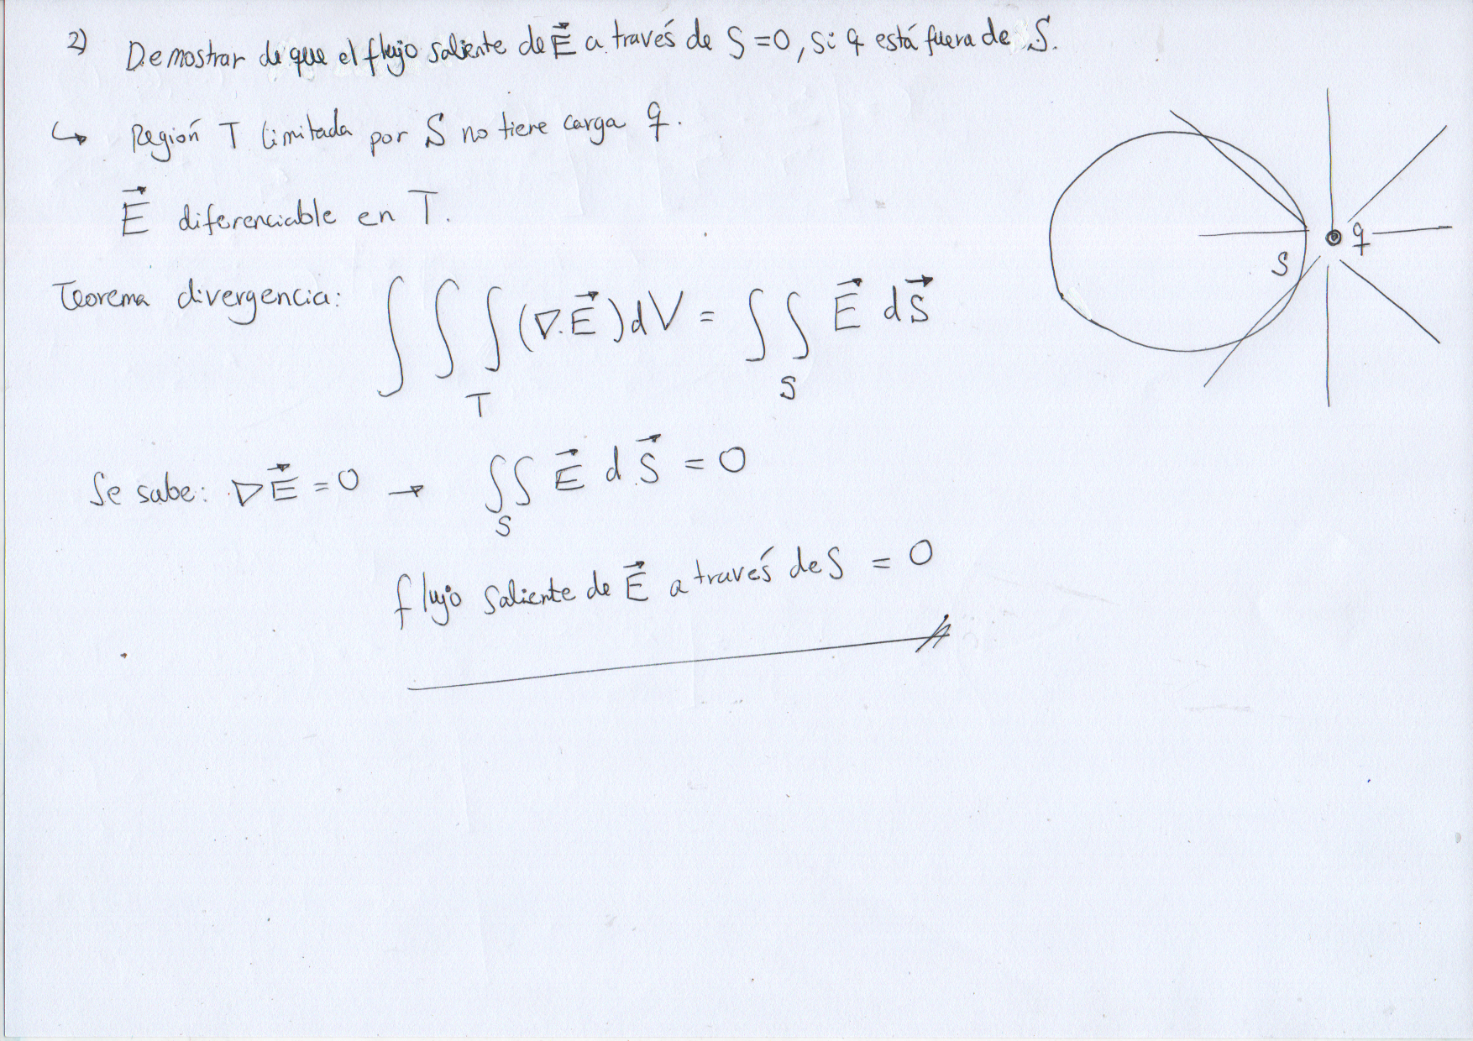 2) Demostrar de que el flujo saliente de E⃗ a través de S = 0, si q está fuera de S.
↳ Región T limitada por S no tiene carga q.
E⃗ diferenciable en T.
Teorema divergencia: ∫∫∫_T (∇·E⃗)dV = ∫∫_S E⃗ dS⃗
Se sabe: ∇E⃗ = 0 → ∫∫_S E⃗ dS⃗ = 0
flujo saliente de E⃗ a través de S = 0
S
q